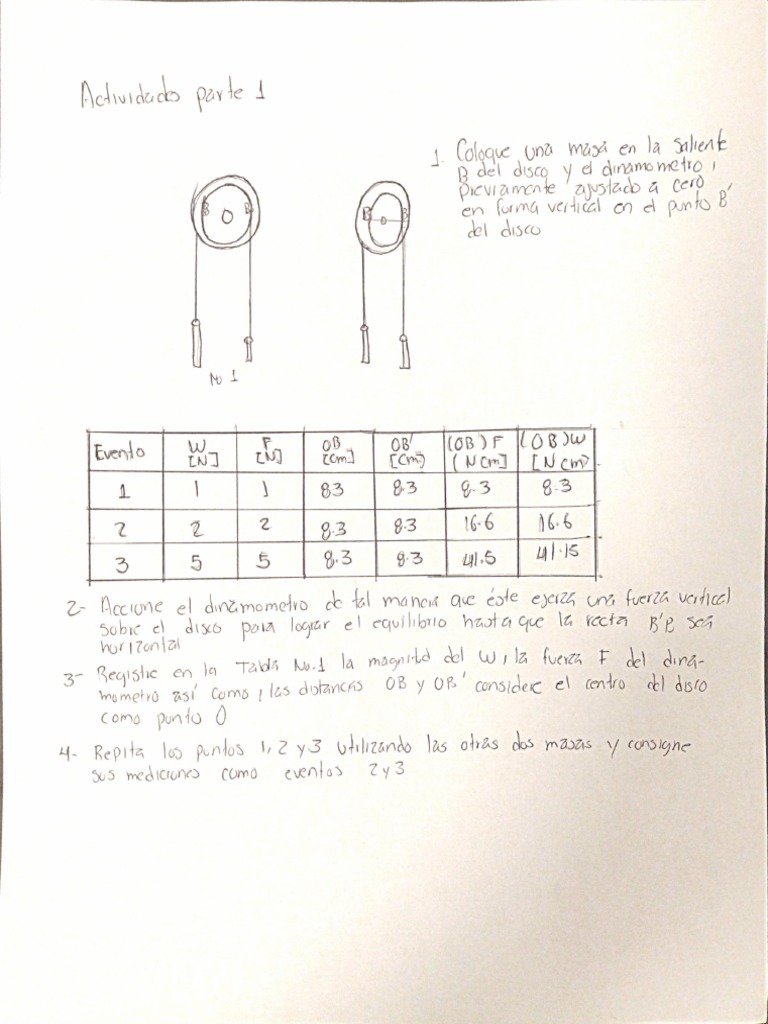 Actividades parte 1
1. Coloque una masa en la saliente
B del disco y el dinamometro,
previamente ajustado a cero
en forma vertical en el punto B'
del disco
B O B
B O B
No 1
Evento W [N] F [N] OB [Cm] OB' [Cm] (OB')F (NCm] (OB)W [NCm)
1 1 1 83 8.3 8.3 8.3
2 2 2 8.3 8.3 16.6 16.6
3 5 5 8.3 8.3 41.5 41.15
2- Accione el dinamometro de tal manera que éste ejerza una fuerza vertical
sobre el disco para lograr el equilibrio hasta que la recta B'B sea
horizontal
3- Registre en la Tabla No.1 la magnitud del W, la fuerza F del diná-
mometro así como, las distancias OB y OB' considere el centro del disco
como punto O
4- Repita los puntos 1, 2 y 3 utilizando las otras dos masas y consigne
sus mediciones como eventos 2 y 3